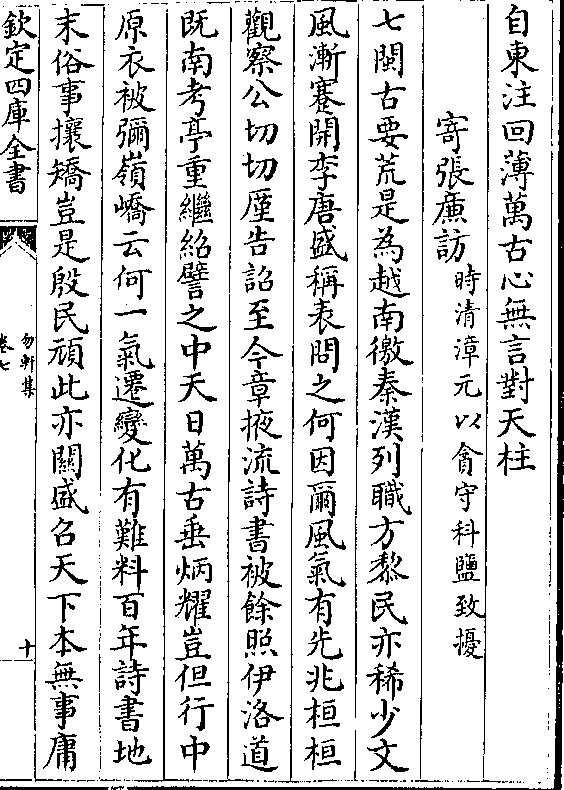 自東注回薄萬古心無言對天柱
寄張廉訪時清漳元以貪守科鹽致擾
七閩古要荒是為越南徼秦漢列職方黎民亦稀少文
風漸蹇開李唐盛稱表問之何因爾風氣有先兆桓桓
觀察公切切廑告詔至今章掖流詩書被餘照伊洛道
既南考亭重繼紹譬之中天日萬古垂炳耀豈但行中
原衣被彌嶺嶠云何一氣遷變化有難料百年詩書地
末俗事攘矯豈是殷民頑此亦關盛召天下本無事庸
欽定四庫全書
勿軒集
卷七
十